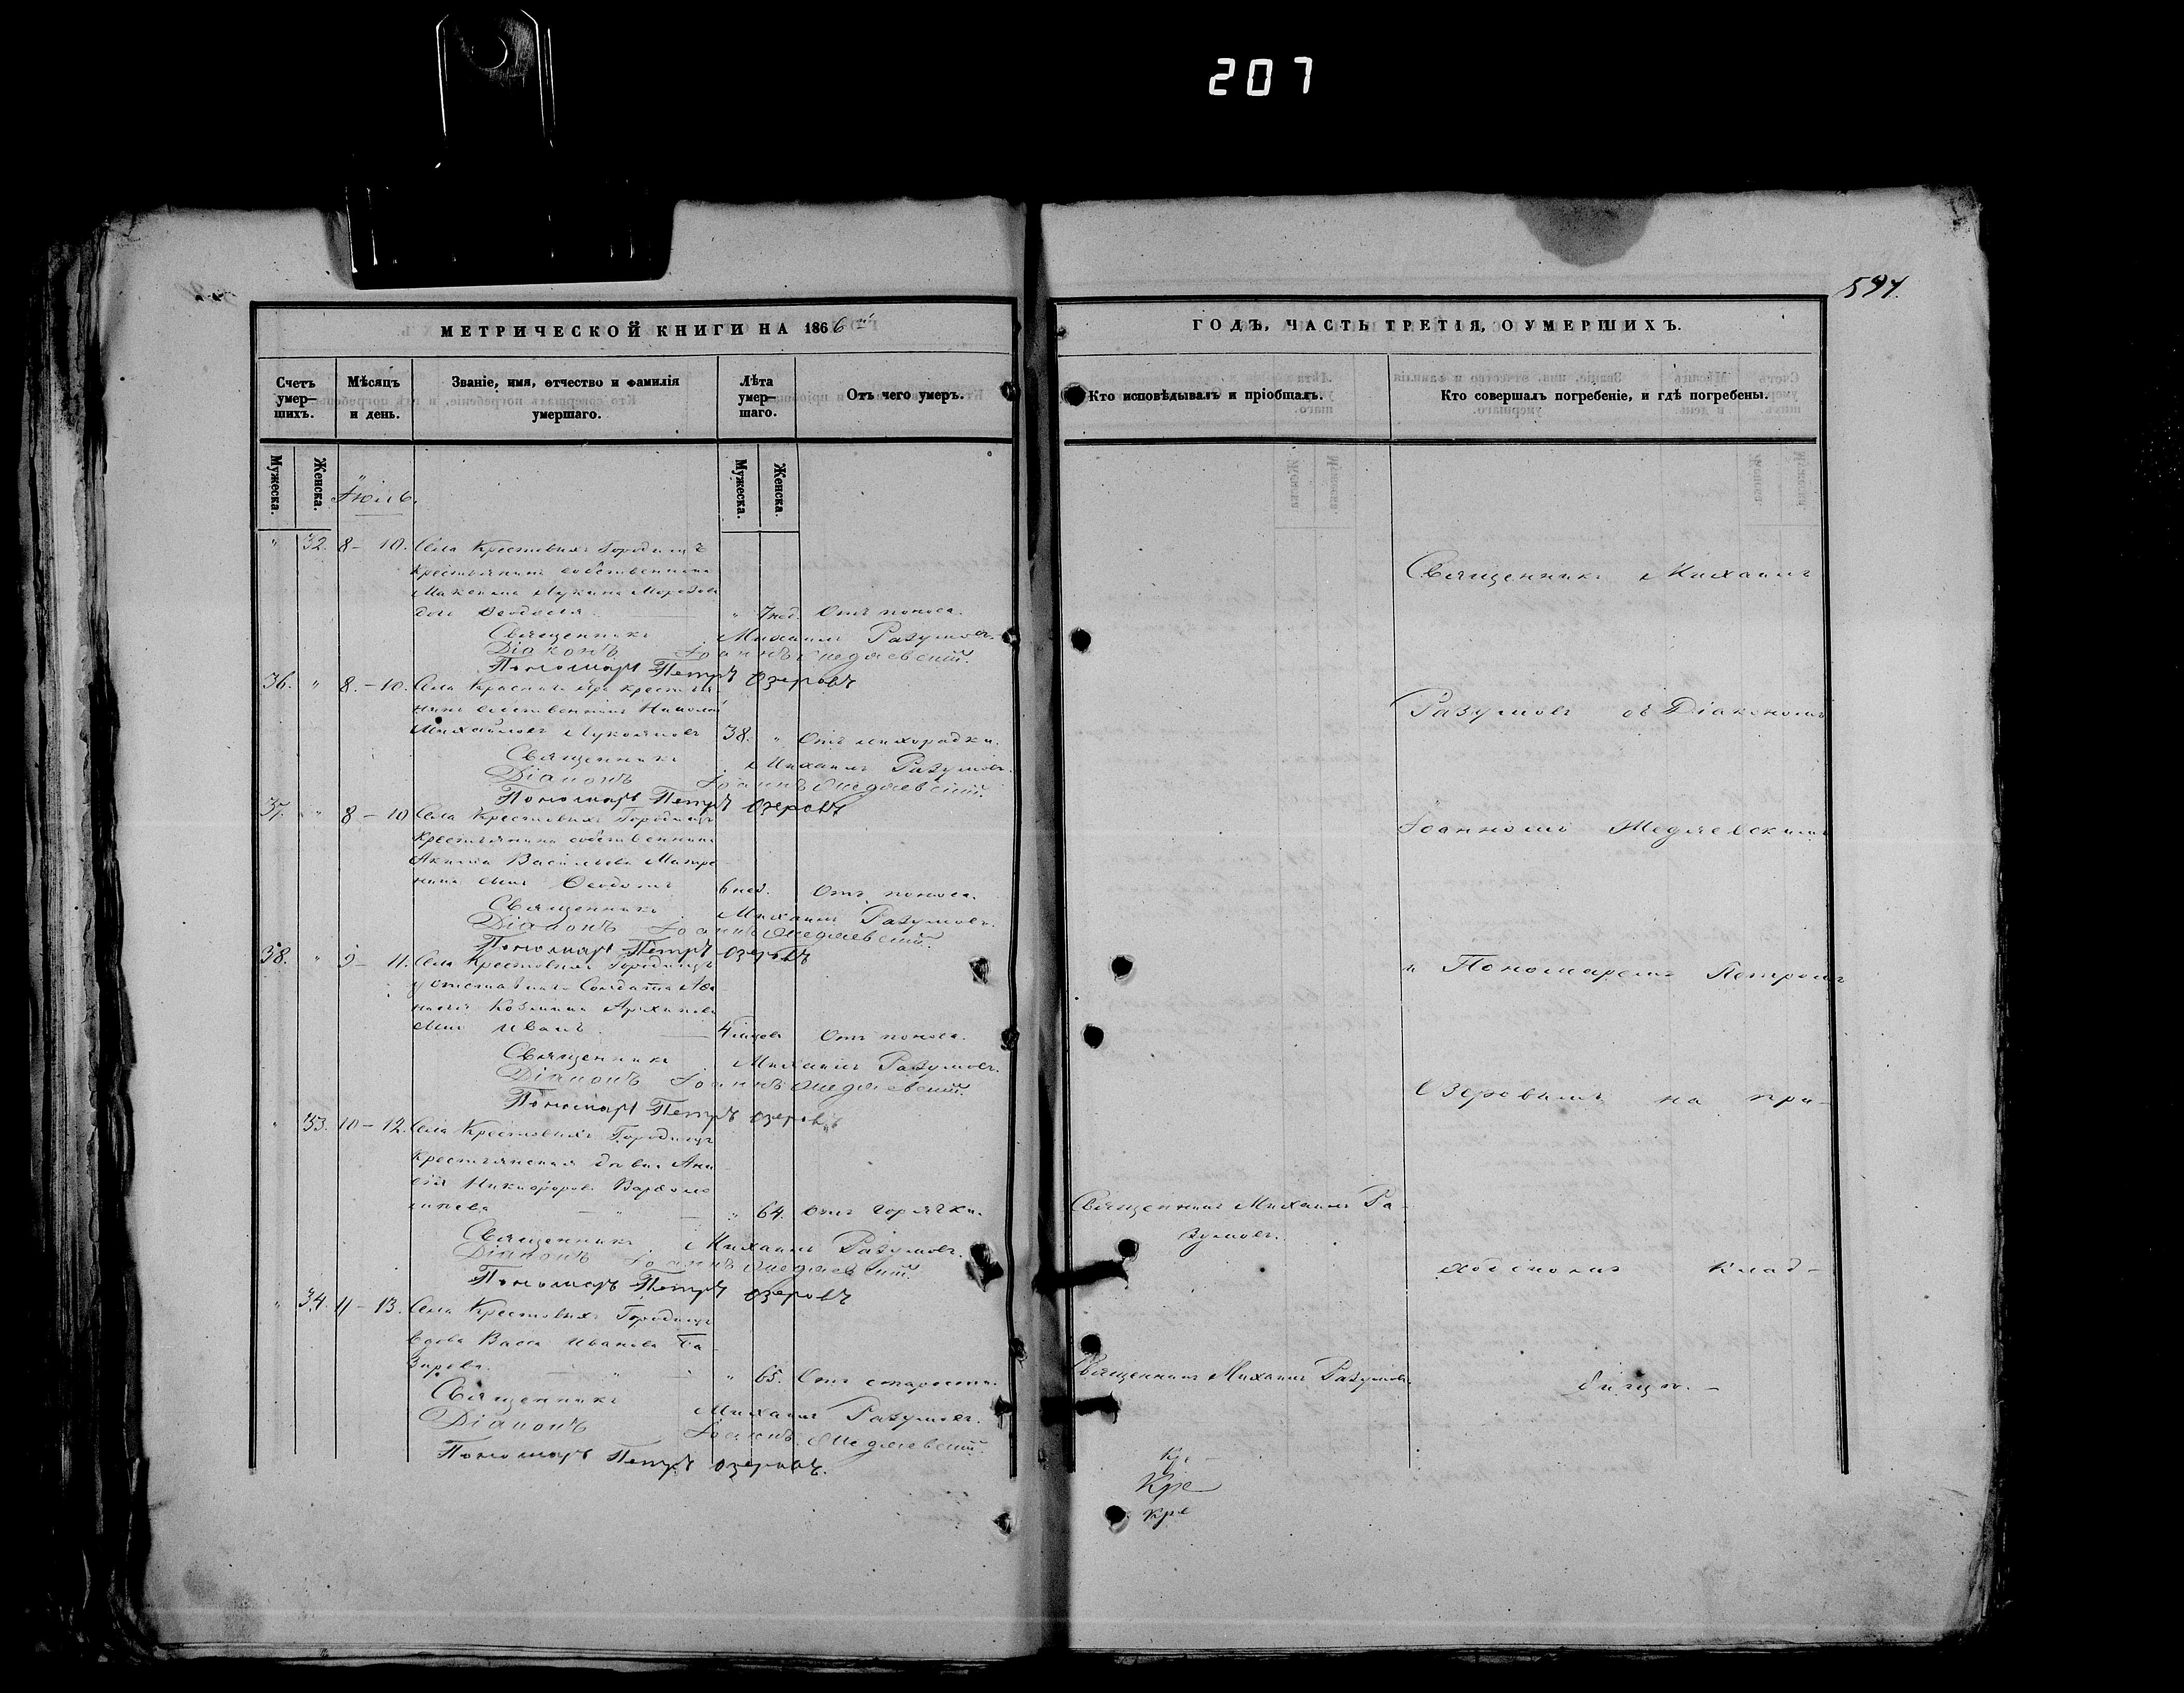 207
594.
МЕТРИЧЕСКОЙ КНИГИ НА 1866й
Счетъ умер-шихъ.
Мѣсяцъ и день.
Званіе, имя, отчество и фамилія умершаго.
Лѣта умер-шаго.
Отъ чего умеръ.
Мужеска.
Женска.
Мужеска.
Женска.
Іюль.
" 32. 8 - 10. Села Крестовыхъ Городищъ
крестьянина собственника
Максима Лукина Морозова
дочь Ѳеодосія. " 7 нед. Отъ поноса.
Священникъ Михаилъ Разумовъ.
Діаконъ Іоаннъ Медяевскій.
Пономарь Петръ Озеровъ
36. " 8. - 10. Села Краснаго Яра крестья-
нинъ собственникъ Николай
Михайловъ Лукояновъ 38. " Отъ лихорадки.
Священникъ Михаилъ Разумовъ.
Діаконъ Іоаннъ Медяевскій.
Пономарь Петръ Озеровъ
37. " 8 - 10 Села Крестовыхъ Городищъ
крестьянина собственника
Акима Васильева Матре-
нина сынъ 6 нед. Отъ поноса.
Священникъ Михаилъ Разумовъ.
Діаконъ Іоаннъ Медяевскій.
Пономарь Петръ Озеровъ
38. " 9 - 11. Села Крестовыхъ Городищъ
Солдата
Козьмина Архипова
сынъ Иванъ. Отъ поноса.
Священникъ Михаилъ Разумовъ.
Діаконъ Іоаннъ Медяевскій.
Пономарь Петръ Озеровъ
" 33. 10 - 12. Села Крестовыхъ Городищъ
крестьянская
Никифорова
" 64. Отъ горячки.
Священникъ Михаилъ Разумовъ.
Діаконъ Іоаннъ Медяевскій.
Пономарь Петръ Озеровъ
" 34. 11 - 13. Села Крестовыхъ Городищъ
вдова Васса Иванова Ба-
зирова. " 65. Отъ старости.
Священникъ Михаилъ Разумовъ.
Діаконъ Іоаннъ Медяевскій.
Пономарь Петръ Озеровъ.
ГОДЪ, ЧАСТЬ ТРЕТІЯ, О УМЕРШИХЪ.
Кто исповѣдывалъ и пріобщалъ.
Кто совершалъ погребеніе, и гдѣ погребены.
Священникъ Михаилъ Ра-
зумовъ.
Священникъ Михаилъ Разумовъ.
Священникъ Михаилъ
Разумовъ съ Діакономъ
Іоанномъ Медяевскимъ
и Пономаремъ Петромъ
Озеровымъ на при-
ходскомъ клад-
бищѣ. -
Кре
Кре
кре